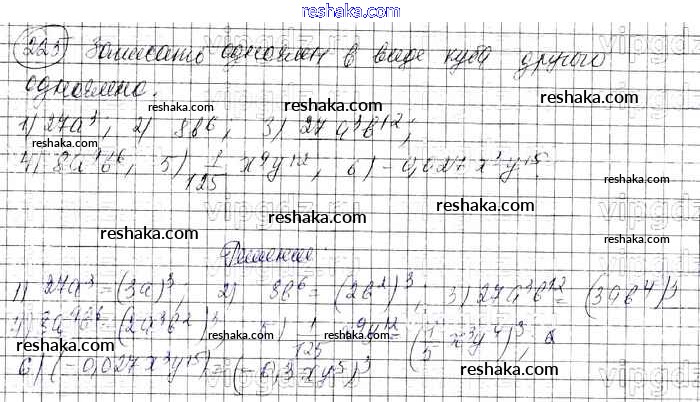 reshaka.com
223 Записать одночлен в виде куба другого
одночлена.
reshaka.com reshaka.com reshaka.com
1) 27a³; 2) 8b⁶; 3) 27a³b¹²;
4) 8a⁹b⁶; 5) 1/125 x⁹y¹²; 6) -0,027x³y¹⁵.
reshaka.com reshaka.com reshaka.com
Решение:
reshaka.com reshaka.com reshaka.com
1) 27a³=(3a)³; 2) 8b⁶=(2b²)³; 3) 27a³b¹²=(3ab⁴)³
reshaka.com reshaka.com reshaka.com
6) (-0,027x³y¹⁵)=(-0,3xy⁵)³
reshaka.com